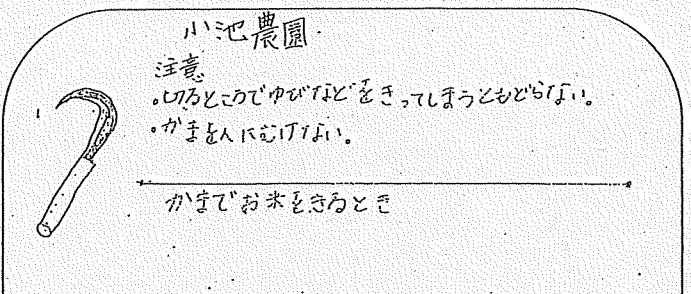 小池農園
注意
・切るところでゆびなどをきってしまうともどらない。
・かまを人にむけない。
かまでお米をきるとき